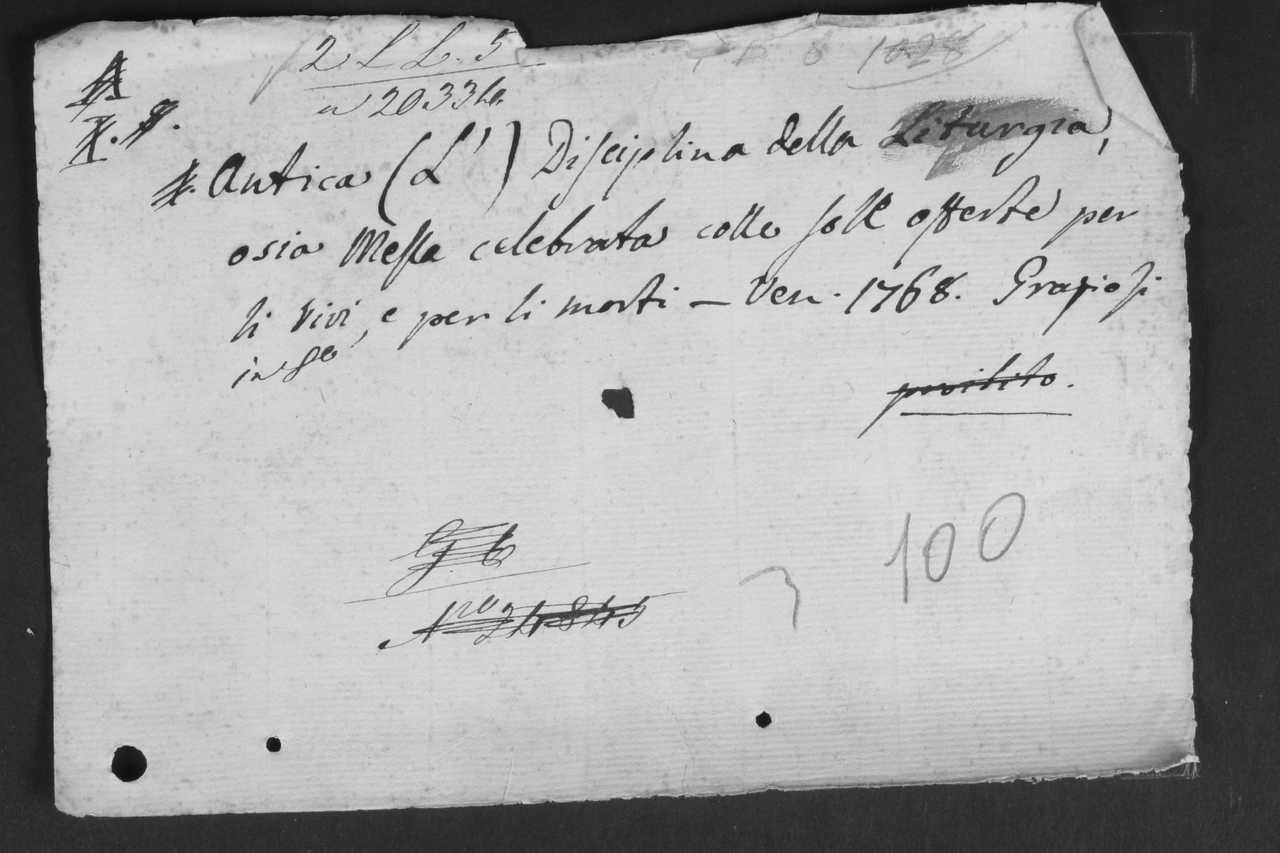 2 L L. 5
1028
n 2033 ha
Antica (L') Disciplina della Liturgia,
osia Messa celebrata colle sole offerte per
li vivi, e per li morti – Ven. 1768. Graziosi
in 8o
proibito.
G 6
Nro 24845
100